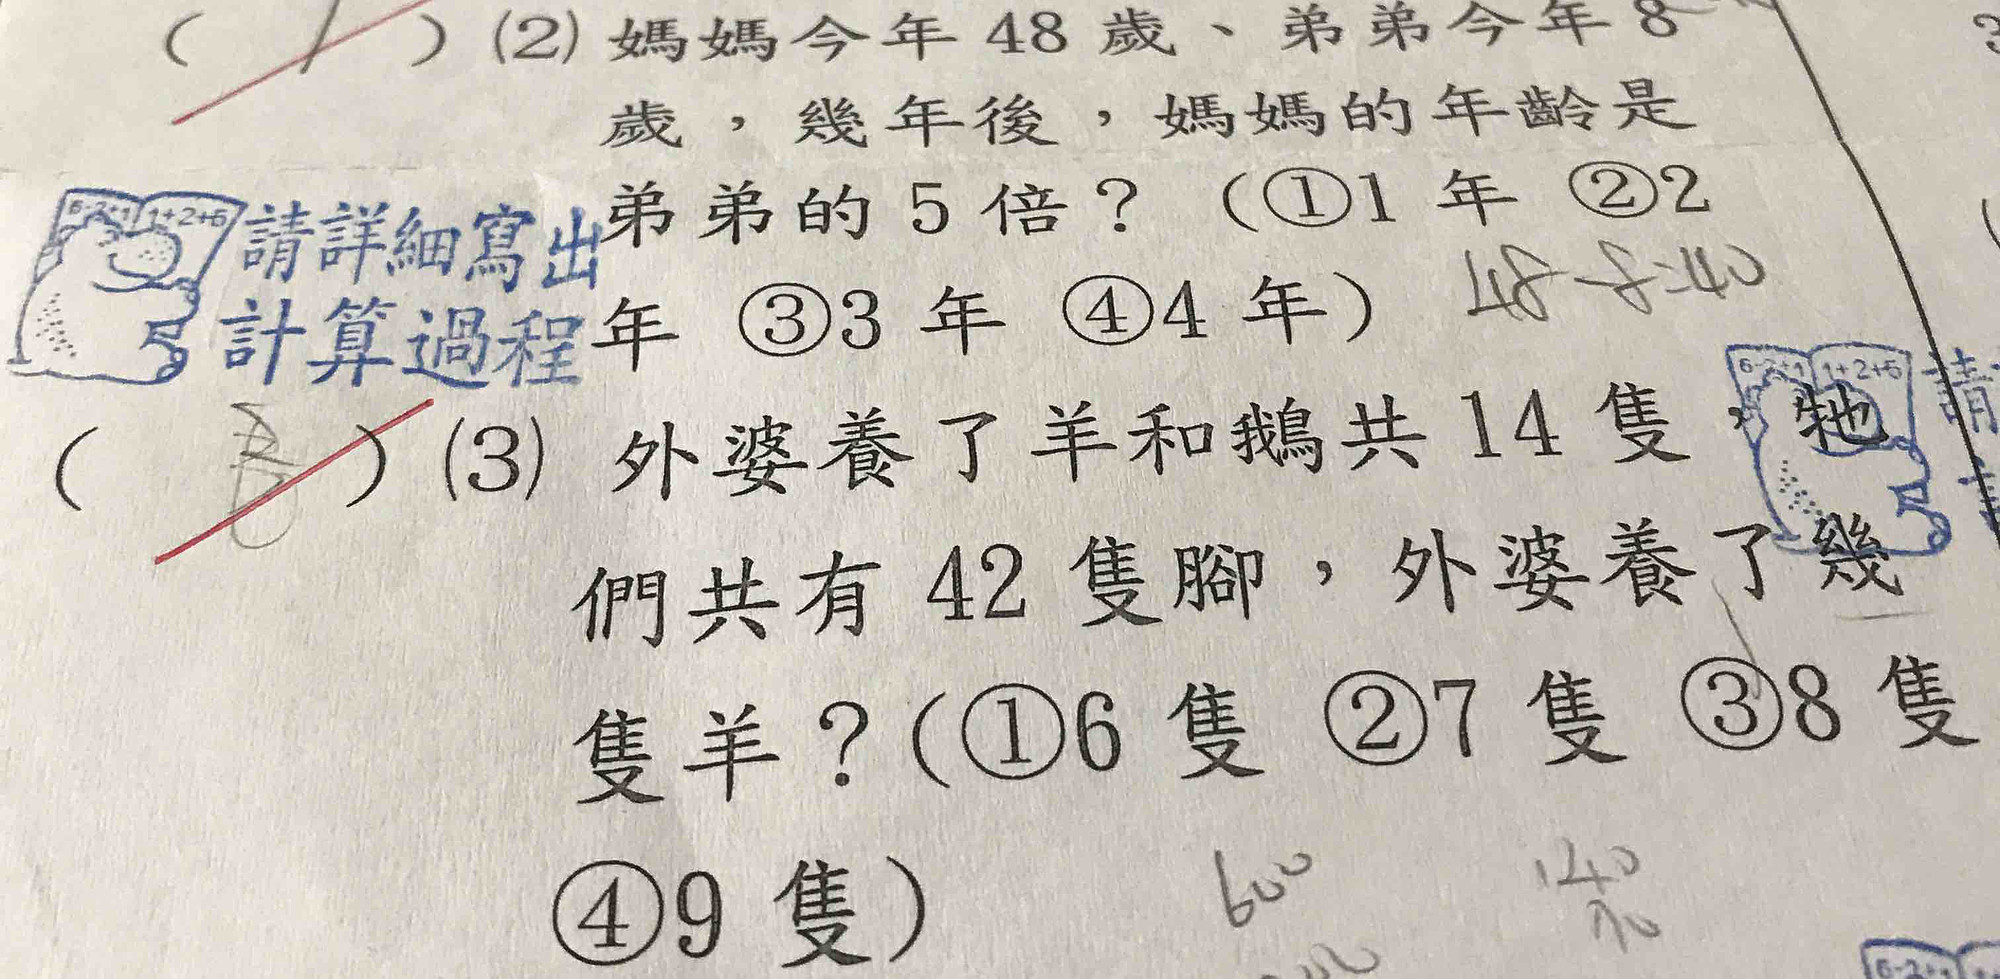 ( ) (2) 媽媽今年 48 歲、弟弟今年 8
歲，幾年後，媽媽的年齡是
弟弟的 5 倍？（①1 年 ②2
年 ③3 年 ④4 年）
48-8=40
6-2+1 1+2+6
請詳細寫出
計算過程
( ) (3) 外婆養了羊和鵝共 14 隻，牠
們共有 42 隻腳，外婆養了幾
隻羊？(①6 隻 ②7 隻 ③8 隻
④9 隻)
6-2+1 1+2+6
請
600
140